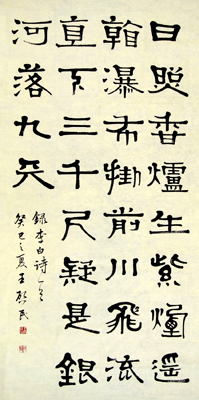 日照香爐生紫煙遙
看瀑布掛前川飛流
直下三千尺疑是銀
河落九天
錄李白诗一首
癸巳之夏王啟民